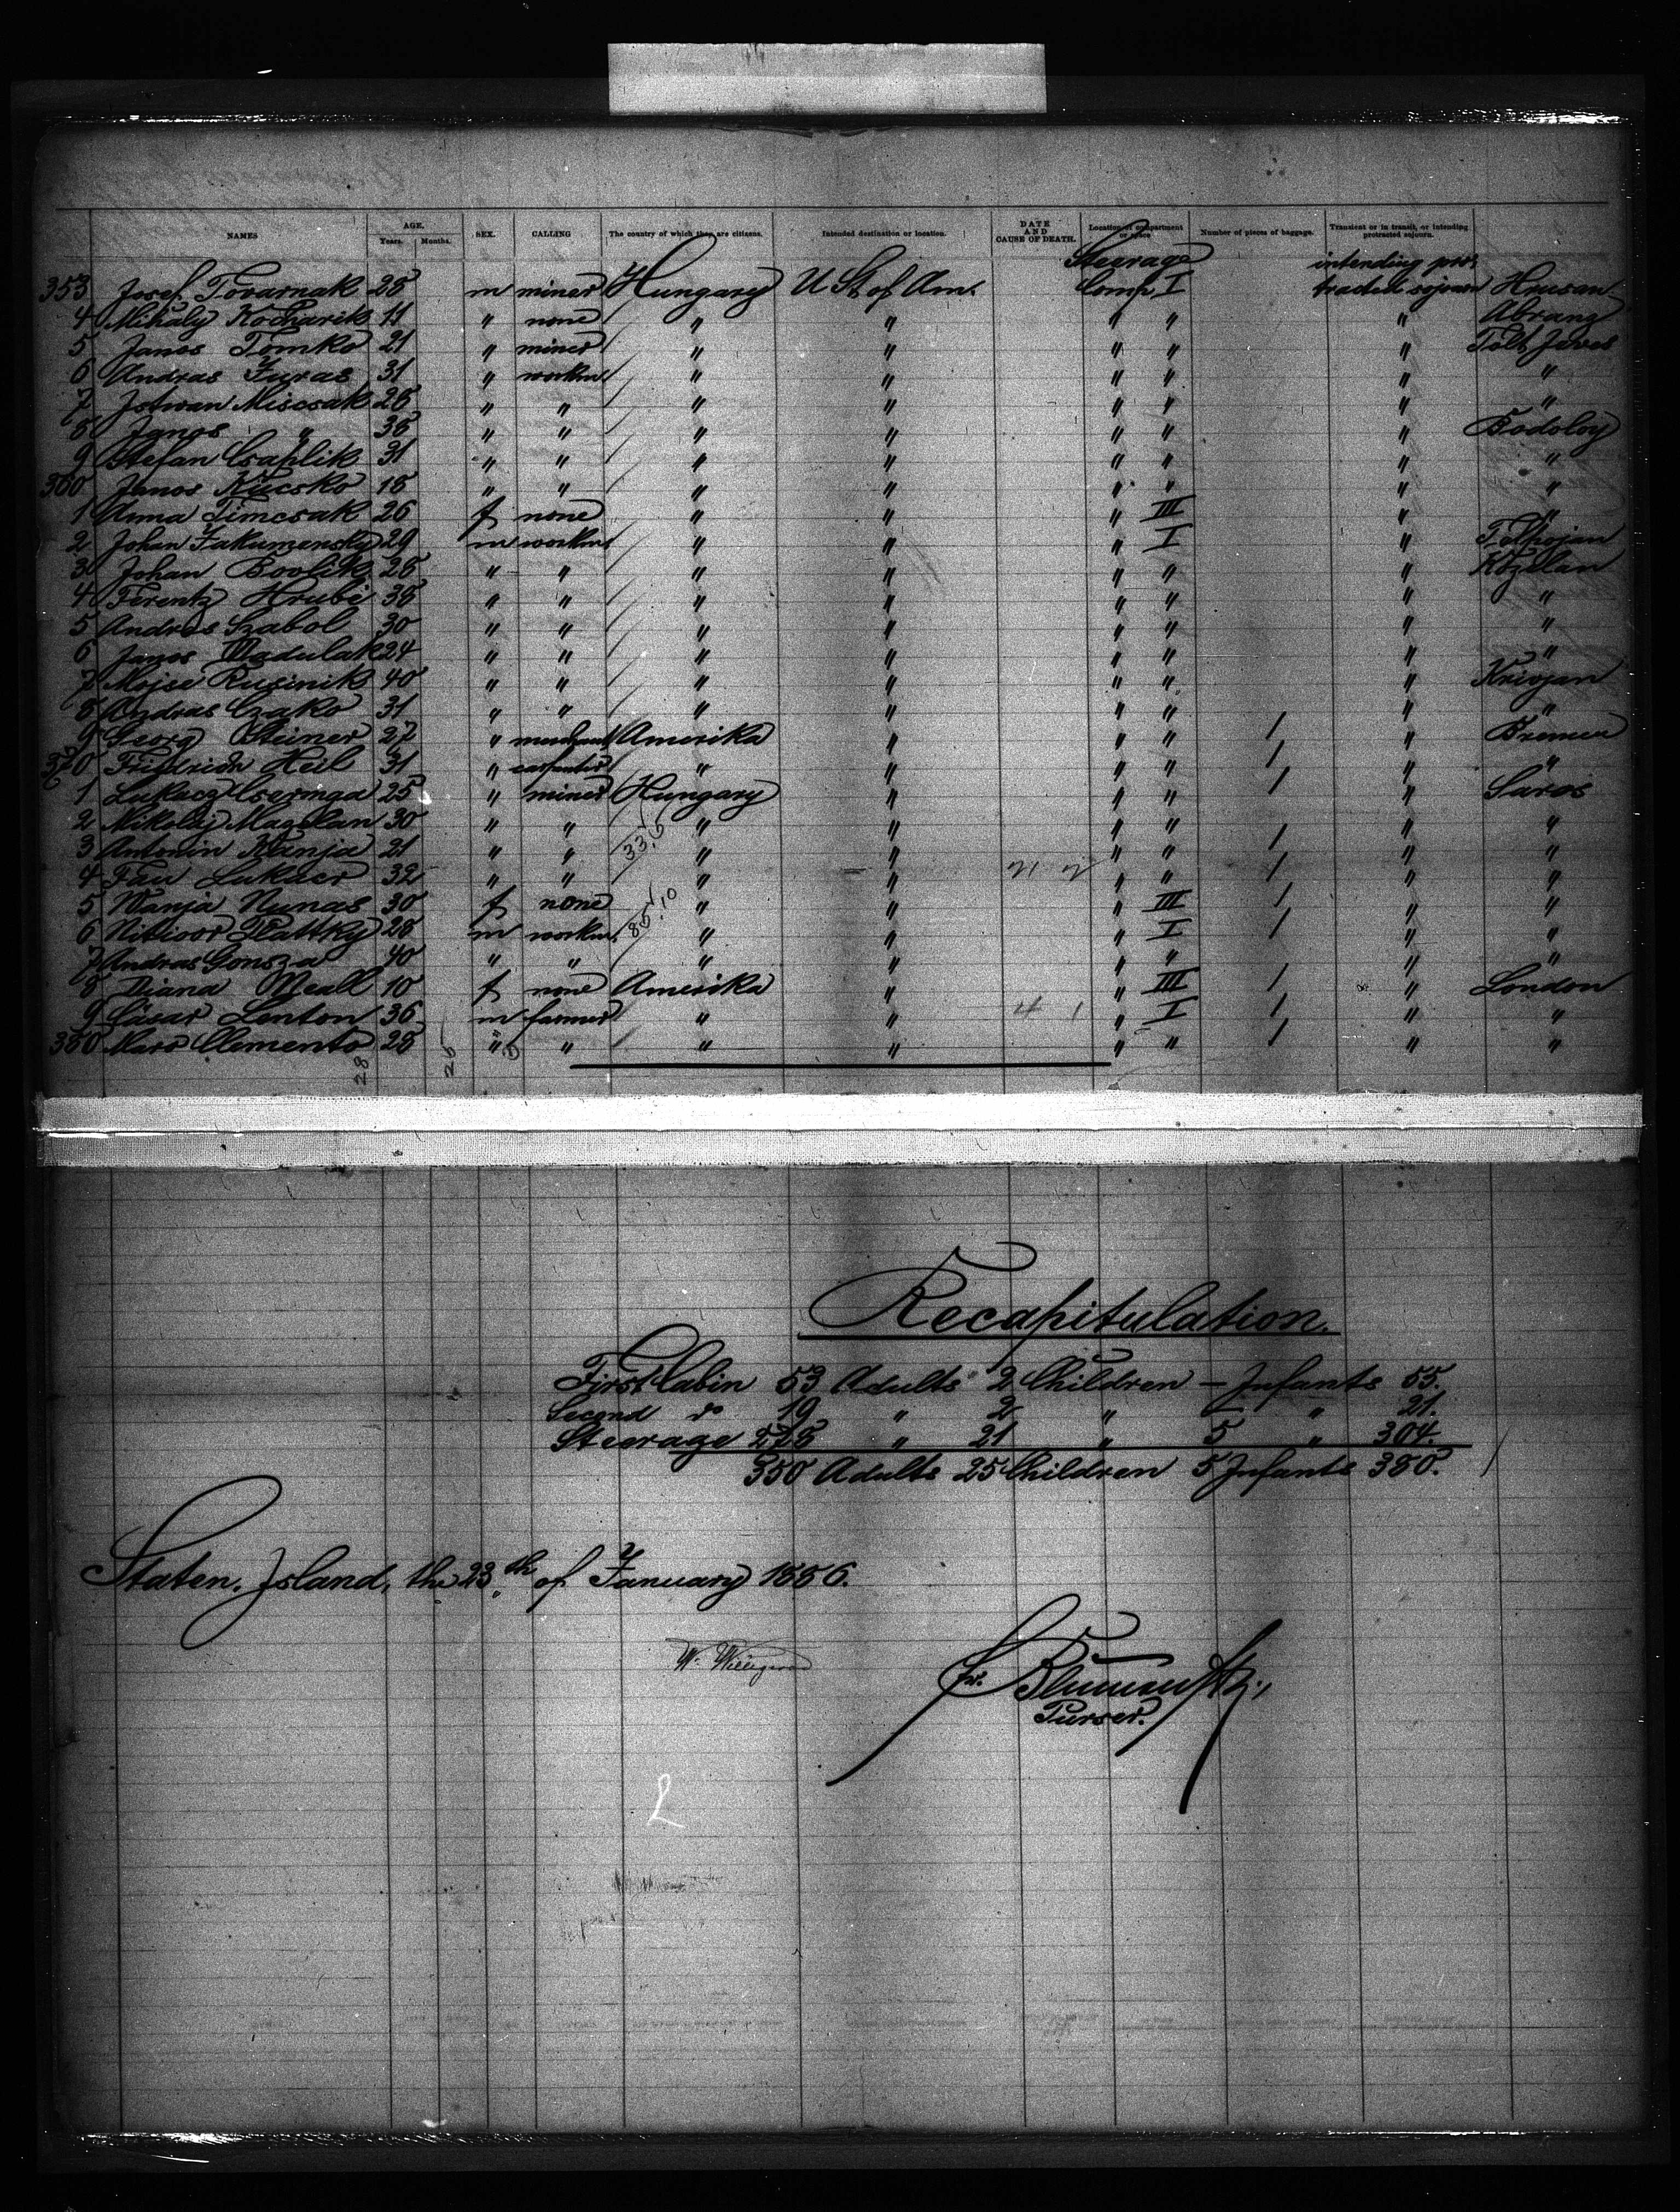 NAMES AGE. Years. Months. SEX. CALLING The country of which they are citizens. Intended destination or location. DATE AND CAUSE OF DEATH. Location of compartment or space Number of pieces of baggage. Transient or in transit, or intending protracted sojourn.
353 Josef Tovarnak 28 m miner Hungary U St. of Am. Steerage Comp. I intending protracted sojourn Hrusan
4 Mihaly Kocharik 11 " none " " " " " Abrany
5 Janos Tomko 21 " miner " " " " "
6 Andras Juras 31 " workm " " " " " "
7 Istwan Miscsak 28 " " " " " " " "
8 Janos " 38 " " " " " " " Bodoloy
9 Stefan Csaplik 31 " " " " " " " "
360 Janos Kucsko 18 " " " " " " " "
1 Anna Timcsak 26 f none " " " III " "
2 Johan Jakumensky 29 m workm " " " I "
3 Johan Bovlik 28 " " " " " " " Kozelan
4 Ferentz Hrubi 38 " " " " " " " "
5 Andras Szabol 30 " " " " " " " "
6 Janos Madulak 24 " " " " " " " "
7 Mojse Rusinik 40 " " " " " " " Krivjan
8 Andras Czako 31 " " " " " " " "
9 Georg Steiner 27 " merchant Amerika " " " 1 " Bremen
370 Friedrich Heil 31 " carpenter " " " " 1 " "
1 Lukacz Csermga 25 " miner Hungary " " " 1 " Saros
2 Nikolaj Magelan 30 " " " " " " " "
3 Antonin Wanja 21 " " " " " " 1 " "
4 Fau Lukacs 32 " " " " " " 1 " "
5 Wanja Nunas 30 f none " " " III 1 " "
6 Plattky 28 m workm. " " " I 1 " "
7 Andras Gonsza 40 " " " " " " " "
8 Diana Weall 10 f none Amerika " " III 1 " London
9 Cäsar Lenton 36 m farmer " " " I 1 " "
380 Maro Clemento 28 " " " " " " 1 " "
Recapitulation.
First Cabin 53 Adults 2 Children — Infants 55.
Second do 19 " 2 " — " 21.
Steerage 278 " 21 " 5 " 304.
350 Adults 25 Children 5 Infants 380.
Staten. Island, the 23th of January 1886.
Purser.
2